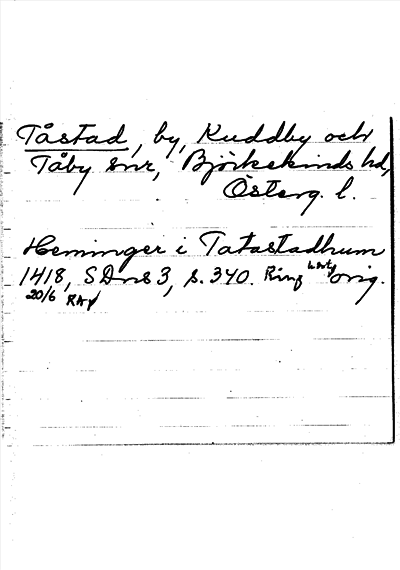 Tåstad, by, Kuddby och
Tåby snr, Björkekinds hd,
Österg. l.
Heminger i Tatastadhum
1418, SDns 3, s. 340. Ring orig.
20/6 RAp